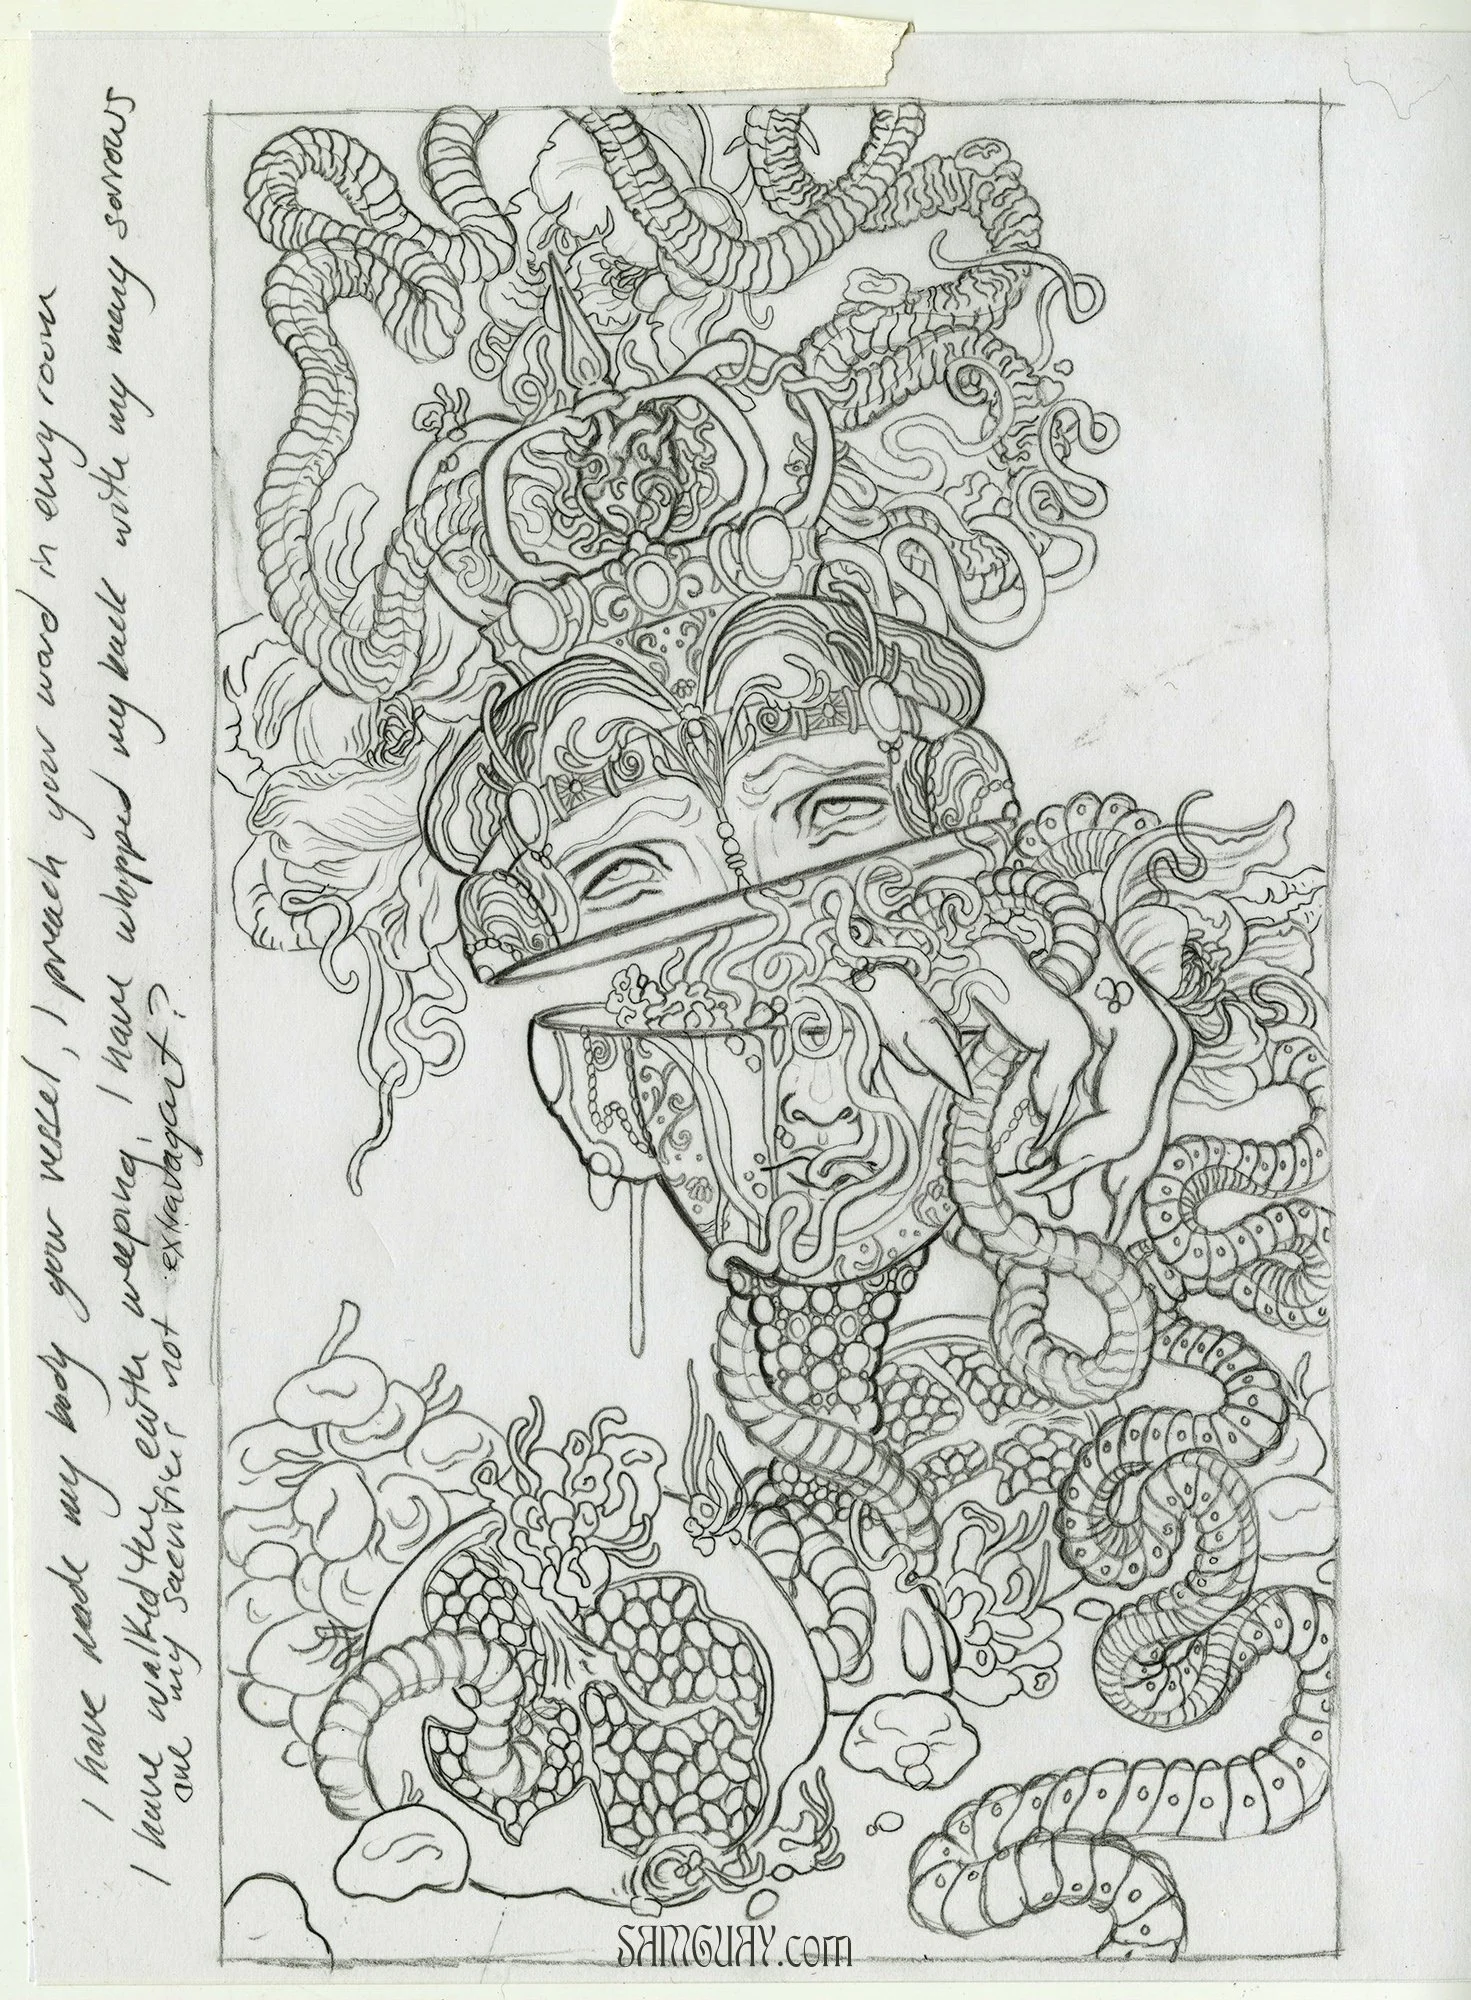 I have made my body your vessel, I preach your word in every room
I have walked the earth weeping, I have whipped my back with my many sorrows
are my sacrifices not extravagant?
SAMGUAY.com